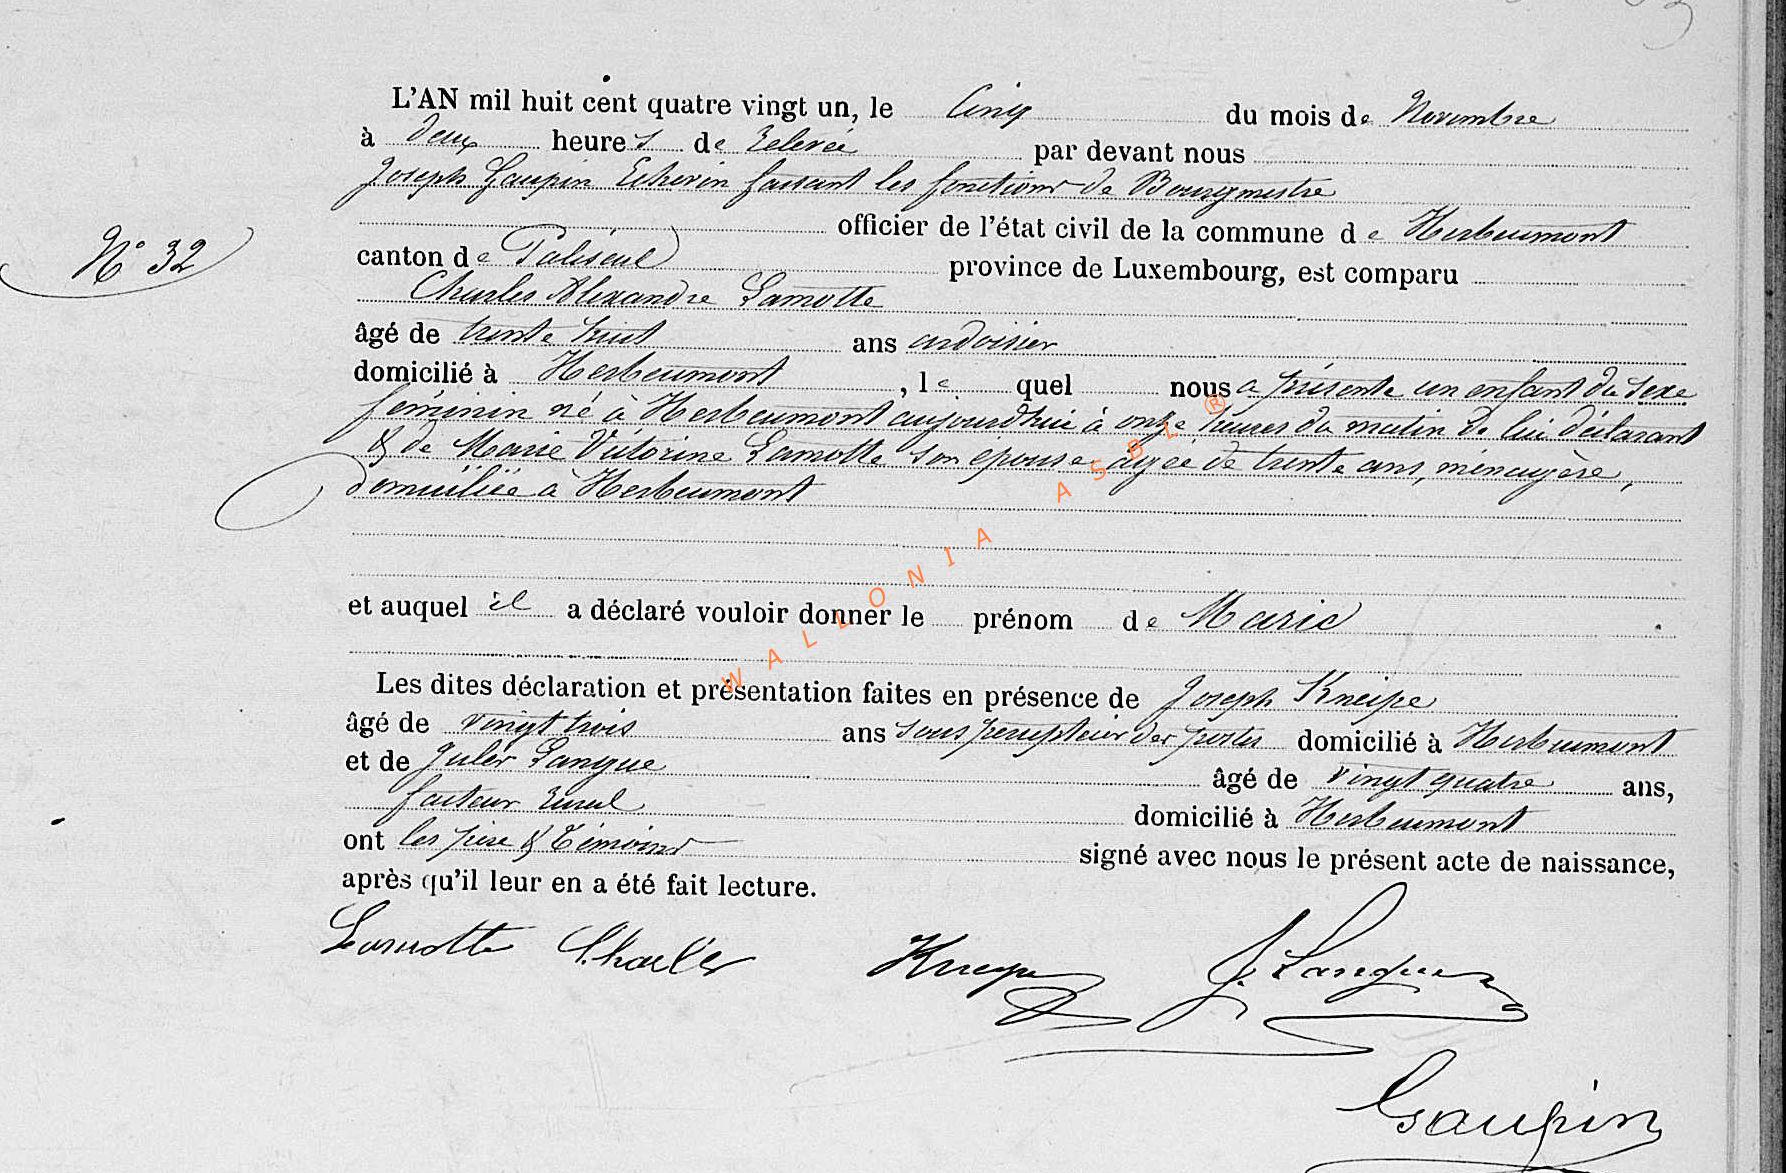 L'AN mil huit cent quatre vingt un, le Cinq du mois de Novembre
à deux heures de relevée par devant nous
Joseph Gaupin Echevin faisant les fonctions de Bourgmestre
officier de l'état civil de la commune de Herbeumont
N° 32
canton de Paliseul province de Luxembourg, est comparu
Charles Alexandre Lamotte
âgé de trente huit ans ardoisier
domicilié à Herbeumont, lequel nous a présenté un enfant du sexe
féminin né à Herbeumont aujourdhui à onze heures du matin de lui déclarant
& de Marie Victorine Lamotte son épouse agée de trente ans, ménagère,
domiciliée à Herbeumont
et auquel il a déclaré vouloir donner le prénom de Marie
Les dites déclaration et présentation faites en présence de Joseph Kneipe
âgé de vingt trois ans sous percepteur des postes domicilié à Herbeumont
et de Jules Langue âgé de vingt quatre ans,
facteur rural domicilié à Herbeumont
ont les père & témoins signé avec nous le présent acte de naissance,
après qu'il leur en a été fait lecture.
Lamotte Charles Kneipe J. Langue
Gaupin
WALLONIA ASBL ®